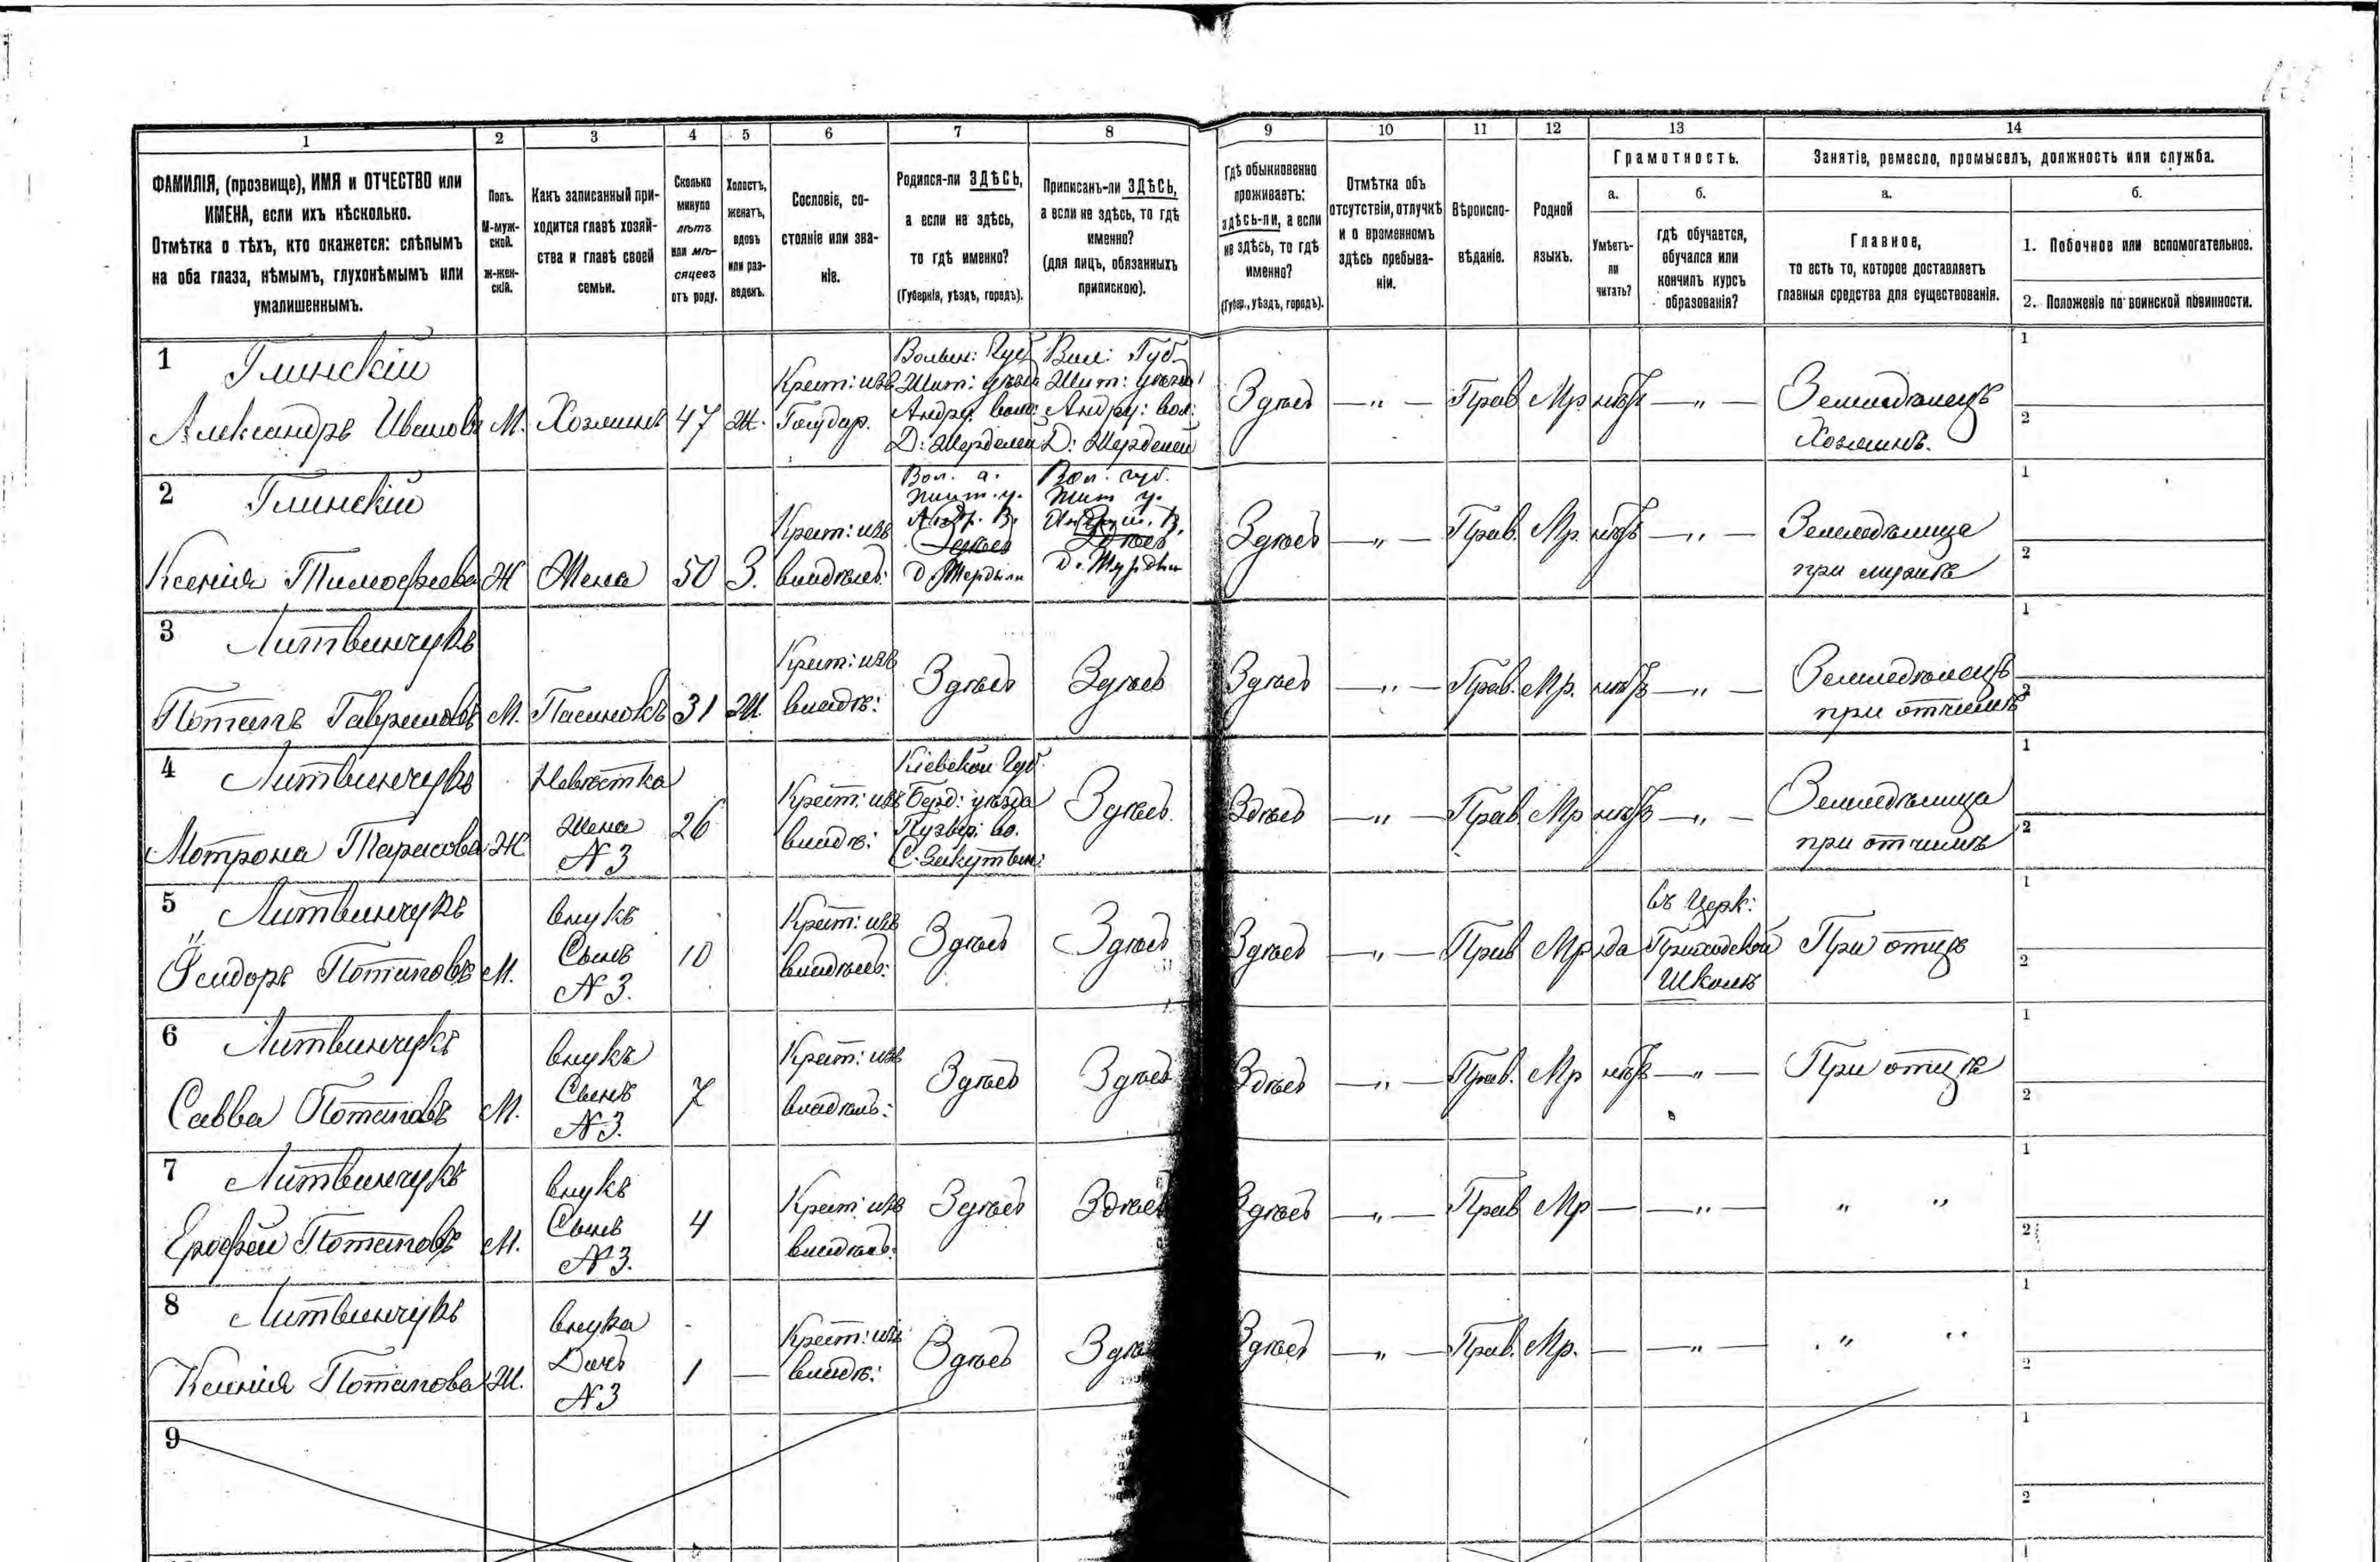 1 2 3 4 5 6 7 8 9 10 11 12 13 14
ФАМИЛІЯ, (прозвище), ИМЯ и ОТЧЕСТВО или
ИМЕНА, если ихъ нѣсколько.
Отмѣтка о тѣхъ, кто окажется: слѣпымъ
на оба глаза, нѣмымъ, глухонѣмымъ или
умалишеннымъ.
Полъ.
М-муж-
ской.
ж-жен-
скій.
Какъ записанный при-
ходится главѣ хозяй-
ства и главѣ своей
семьи.
Сколько
минуло
лѣтъ
или мѣ-
сяцевъ
отъ роду.
Холостъ,
женатъ,
вдовъ
или раз-
веденъ.
Сословіе, со-
стояніе или зва-
ніе.
Родился-ли ЗДѢСЬ,
а если не здѣсь,
то гдѣ именно?
(Губернія, уѣздъ, городъ).
Приписанъ-ли ЗДѢСЬ,
а если не здѣсь, то гдѣ
именно?
(для лицъ, обязанныхъ
припискою).
Гдѣ обыкновенно
проживаетъ:
здѣсь-ли, а если
не здѣсь, то гдѣ
именно?
(Губер., уѣздъ, городъ).
Отмѣтка объ
отсутствіи, отлучкѣ
и о временномъ
здѣсь пребыва-
ніи.
Вѣроиспо-
вѣданіе.
Родной
языкъ.
Грамотность.
а.
Умѣетъ-
ли
читать?
б.
гдѣ обучается,
обучался или
кончилъ курсъ
образованія?
Занятіе, ремесло, промыселъ, должность или служба.
а.
Главное,
то есть то, которое доставляетъ
главныя средства для существованія.
б.
1. Побочное или вспомогательное.
2. Положеніе по воинской повинности.
1 Глинскій
Александръ Ивановъ
М.
Хозяинъ
47
Ж.
Крест: изъ
Государ.
Волын: Губ
Жит: уѣзда
Андру: вол:
Д: Жерделей
Вол: Губ.
Жит: уѣзда
Андру: вол:
Д: Жерделей
Здѣсь — " — Прав Мр. нѣтъ — " —
Земледѣлецъ
Хозяинъ.
1
2
2 Глинскій
Ксенія Тимофеева
Ж
Жена
50
З.
Крест: изъ
владѣль:
Вол. г.
Жит. у.
Андр. В.
Здѣсь
Вол. губ.
Жит у.
Здѣсь
Здѣсь — " — Прав. Мр. нѣтъ — " —
Земледѣлица
при мужѣ
1
2
3 Литвинчукъ
Потапъ Гавриловъ
М.
Пасинокъ
31
Ж.
Крест: изъ
владѣ:
Здѣсь Здѣсь Здѣсь — " — Прав. Мр. нѣтъ — " —
Земледѣлецъ
при отчимѣ
1
2
4 Литвинчукъ
Мотрона Тарасова
Ж
Невѣстка
Жена
№ 3
26
Крест: изъ
владѣ:
Кіевской Губ.
Берд: уѣзда
Здѣсь Здѣсь — " — Прав. Мр нѣтъ — " —
Земледѣлица
при отчимѣ
1
2
5 Литвинчукъ
Ѳсидоръ Потаповъ
М.
внукъ
Сынъ
№ 3.
10
Крест: изъ
владѣль:
Здѣсь Здѣсь Здѣсь — " — Прав Мр да
Въ Церк:
Приходской
Школѣ
При отцѣ
1
2
6 Литвинчукъ
Савва Потаповъ
М.
внукъ
Сынъ
№ 3.
7
Крест: изъ
владѣль:
Здѣсь Здѣсь Здѣсь — " — Прав. Мр нѣтъ — " —
При отцѣ
1
2
7 Литвинчукъ
Ерофей Потаповъ
М.
внукъ
Сынъ
№ 3.
4
Крест: изъ
владѣль:
Здѣсь Здѣсь Здѣсь — " — Прав Мр — — " — " "
1
2
8 Литвинчукъ
Ксенія Потапова
Ж.
внука
Дочь
№ 3
1
—
Крест: изъ
владѣ:
Здѣсь Здѣсь Здѣсь — " — Прав. Мр. — — " — " "
1
2
9
1
2
1